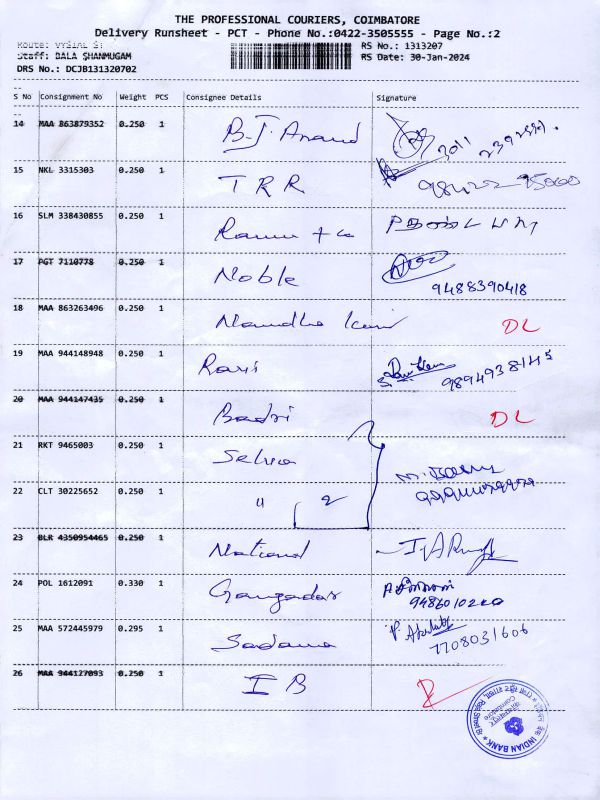 THE PROFESSIONAL COURIERS, COIMBATORE
Delivery Runsheet - PCT - Phone No.:0422-3505555 - Page No.:2
Route: VYSIAL ST
Staff: BALA SHANMUGAM
DRS No.: DCJB131320702
RS No.: 1313207
RS Date: 30-Jan-2024
S No Consignment No Weight PCS Consignee Details Signature
14 MAA 863879352 0.250 1 B.J. Anand
15 NKL 3315303 0.250 1 TRR
16 SLM 338430855 0.250 1
17 PGT 7110778 0.250 1 Noble
9488390418
18 MAA 863263496 0.250 1 DL
19 MAA 944148948 0.250 1 Ravi 9894938145
20 MAA 944147435 0.250 1 Badri DL
21 RKT 9465003 0.250 1 Selva
22 CLT 30225652 0.250 1 " 2
23 BLR 4350954465 0.250 1 National
24 POL 1612091 0.330 1 Gangadar
25 MAA 572445979 0.295 1 Sadama
7708031606
26 MAA 944127093 0.250 1 IB
INDIAN BANK
Coimbatore